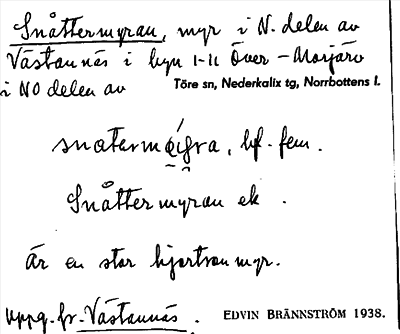 Snåttermyran, myr i N. delen av
Västannäs i byn 1-11 Över-Morjärv
i NO delen av Töre sn, Nederkalix tg, Norrbottens l.
bf. fem.
Snåttermyran ek.
Är en stor hjortronmyr.
Uppg. fr. Västannäs. EDVIN BRÄNNSTRÖM 1938.